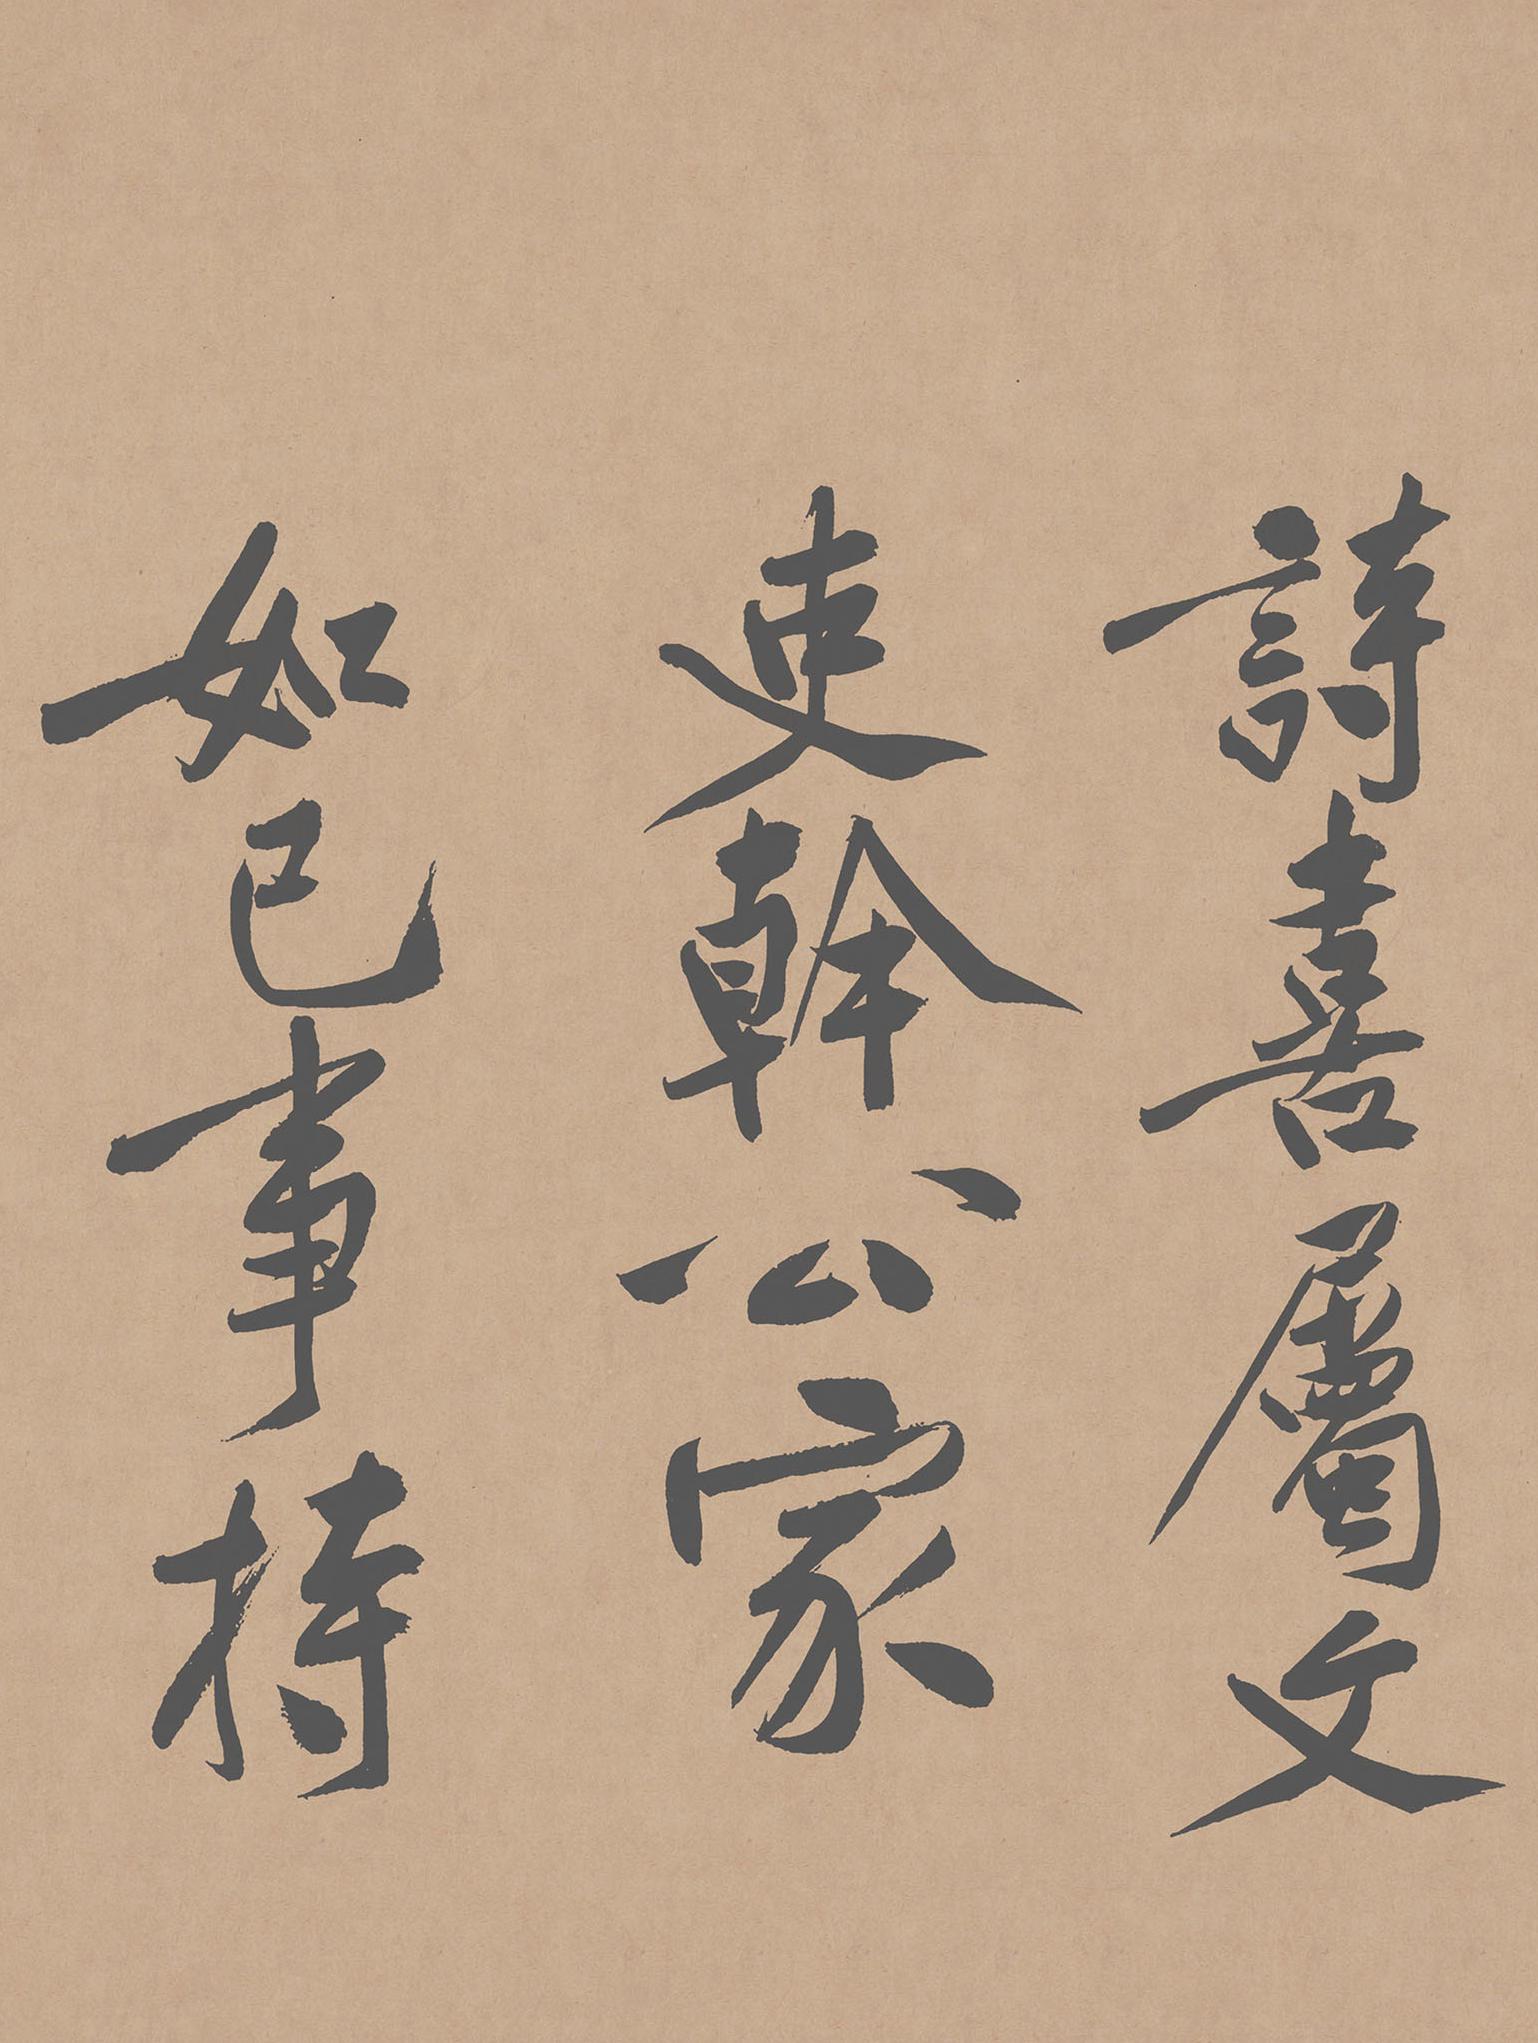 詩喜屬文
吏幹公家
如己事持